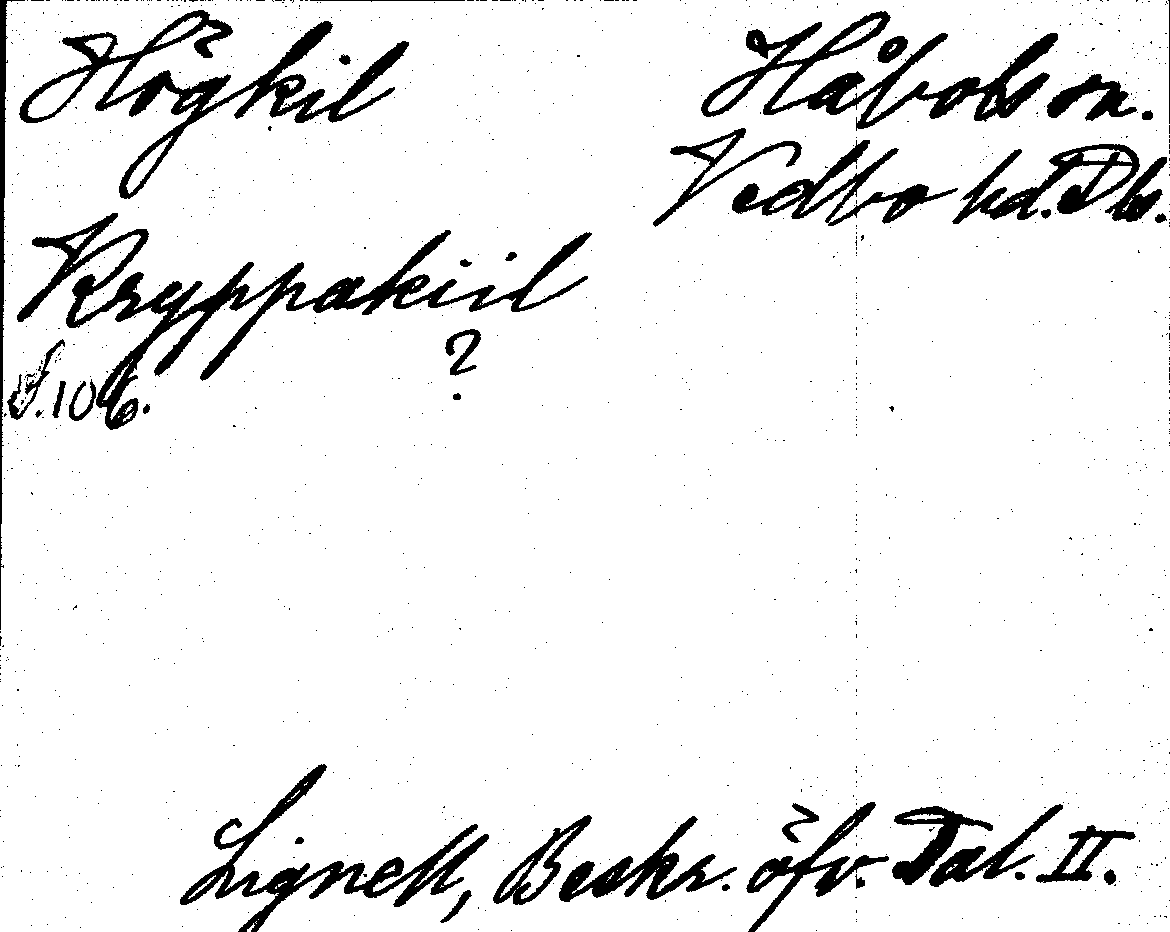 Högkil
Håbols sn.
Vedbo hd. Dls.
Kryppakiil
?
S. 106.
Lignell, Beskr. öfv. Dal. II.